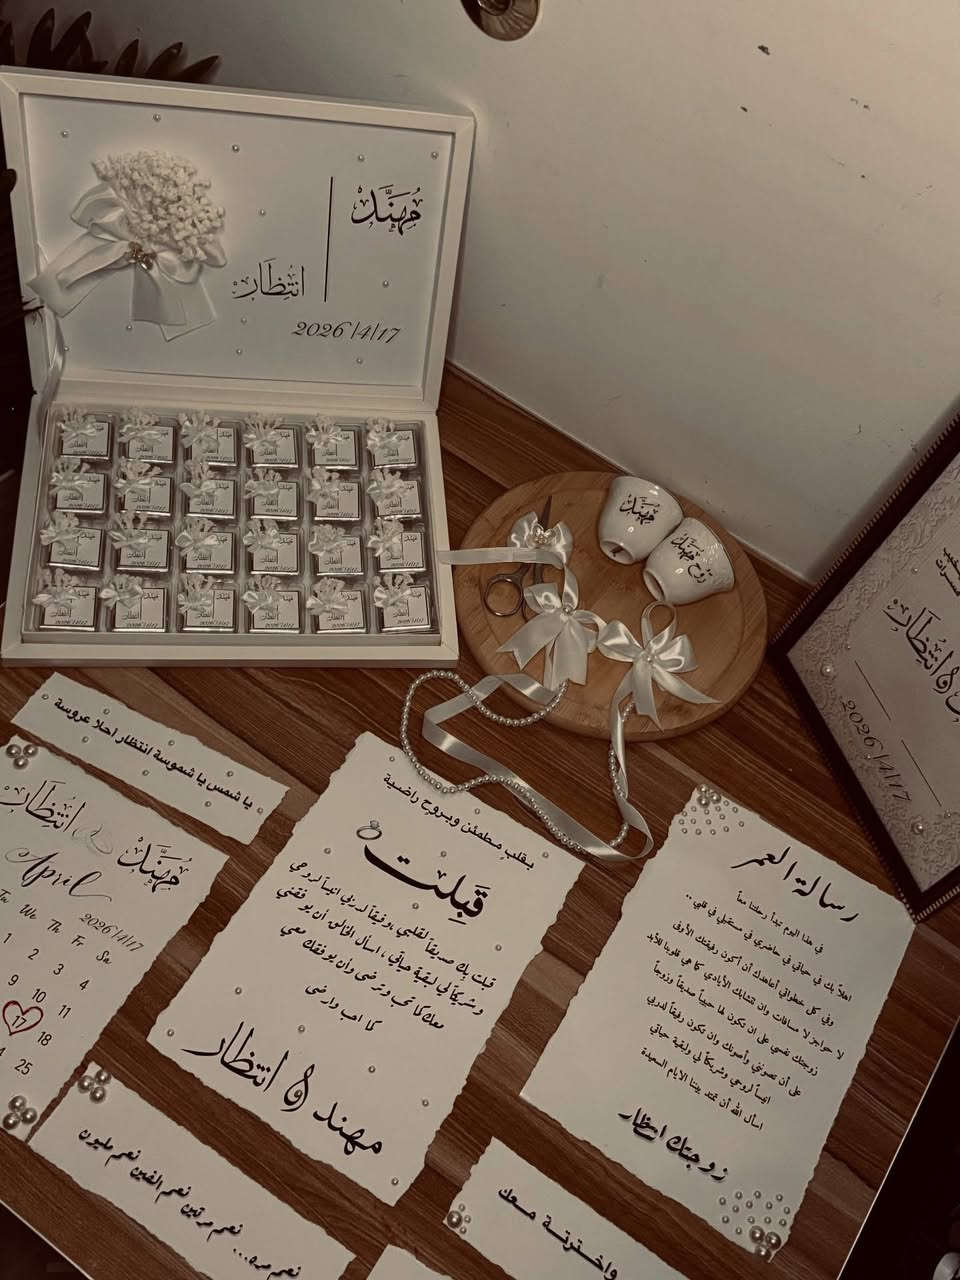 مُهَنَّد
انتِظَار
2026/4/17
مُهَنَّد
روح مُهَنَّد
انتِظَار
2026/4/17
يا شمس يا شموسة انتظار احلا عروسة
مُهَنَّد & انتِظَار
April
2026/4/17
Tu We Th Fr Sa
1 2 3 4
9 10 11
17 18
25
بقلب مطمئن وبروح راضية
قَبِلت
قبلت بك صديقاً لقلبي ،ورفيقاً لدربي انيساً لروحي
وشريكاً لي لبقية حياتي ، اسأل الخالق أن يوفقني
معك كما تحب وترضى وأن يوفقك معي
كما احب وارضى
مهند & انتظار
رسالة العمر
في هذا اليوم تبدأ رحلتنا معاً
اهلاً بك في حياتي في حاضري في مستقبلي في قلبي ..
وفي كل خطواتي أعاهدك أن أكون رفيقتك الأوفى
لا حواجز لا مسافات وان تتشابك الأيادي كما هي قلوبنا للأبد
زوجتك نفسي على ان تكون لها حبيباً صديقاً وزوجاً
على أن تصونني وأصونك وان تكون رفيقاً لدربي
انيساً لروحي وشريكاً لي ولبقية حياتي
اسأل الله أن تمتد بيننا الايام السعيدة
زوجتك انتظار
نعم مره... نعم مرتين نعم الفين نعم مليون
واخترتة معك